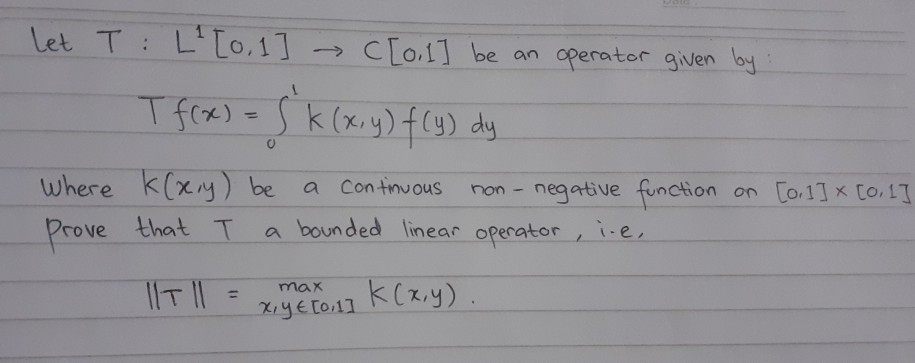 Let T : L¹ [0,1] → C[0,1] be an operator given by :
T f(x) = ∫₀¹ k(x,y) f(y) dy
Where k(x,y) be a continuous non-negative function on [0,1] × [0,1]
Prove that T a bounded linear operator, i.e,
||T|| = max x,y∈[0,1] k(x,y).